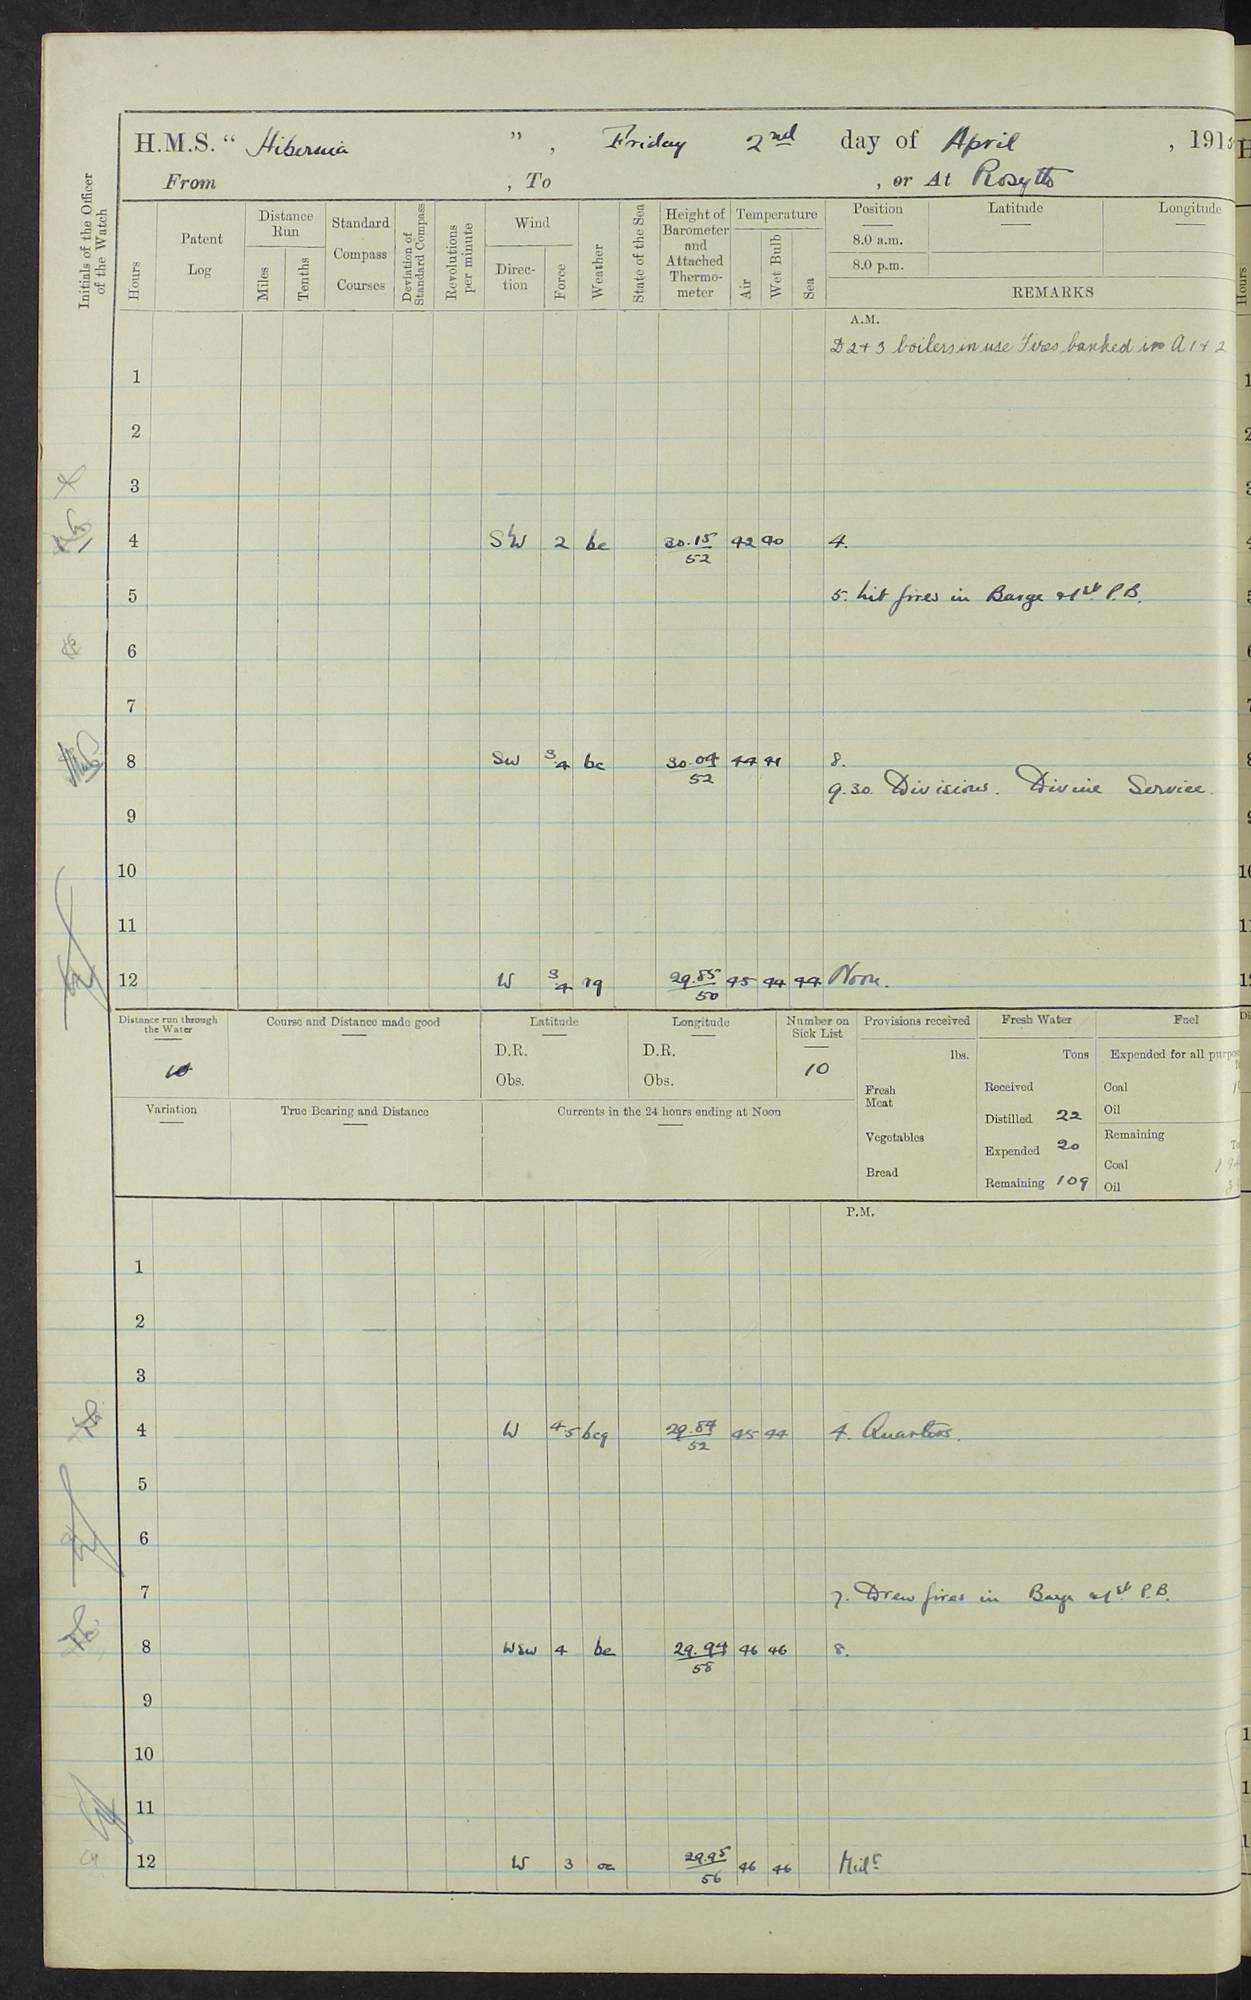 H.M.S. " Hibernia ", Friday 2nd day of April , 191
From , To , or At Rosyth
Initials of the Officer of the Watch
Hours
Patent Log
Distance Run
Miles
Tenths
Standard Compass Courses
Deviation of Standard Compass
Revolutions per minute
Wind
Direc-tion
Force
Weather
State of the Sea
Height of Barometer and Attached Thermo-meter
Temperature
Air
Wet Bulb
Sea
Position Latitude Longitude
8.0 a.m.
8.0 p.m.
REMARKS
A.M.
D 2 + 3 boilers in use Fires banked in A 1 + 2
1
2
3
4 SbW 2 bc 30.15 / 52 42 40 4.
5 5. Lit fires in Barge & 1st P.B.
6
7
8 SW 3.4 bc 30.04 / 52 44 41 8.
9.30. Divisions. Divine Service.
9
10
11
12 W 3.4 rq 29.85 / 50 45 44 44 Noon.
Distance run through the Water
Course and Distance made good
Latitude
D.R.
Obs.
Longitude
D.R.
Obs.
Number on Sick List
10
Variation
True Bearing and Distance
Currents in the 24 hours ending at Noon
Provisions received
lbs.
Fresh Meat
Vegetables
Bread
Fresh Water
Tons
Received
Distilled 22
Expended 20
Remaining 109
Fuel
Expended for all
Coal
Oil
Remaining
Coal
Oil
P.M.
1
2
3
4 W 4.5 bcq 29.84 / 52 45 44 4. Quarters.
5
6
7 7. Drew fires in Barge & 1st P.B.
8 WSW 4 bc 29.94 / 58 46 46 8.
9
10
11
12 W 3 oc 29.95 / 56 46 46 Midt